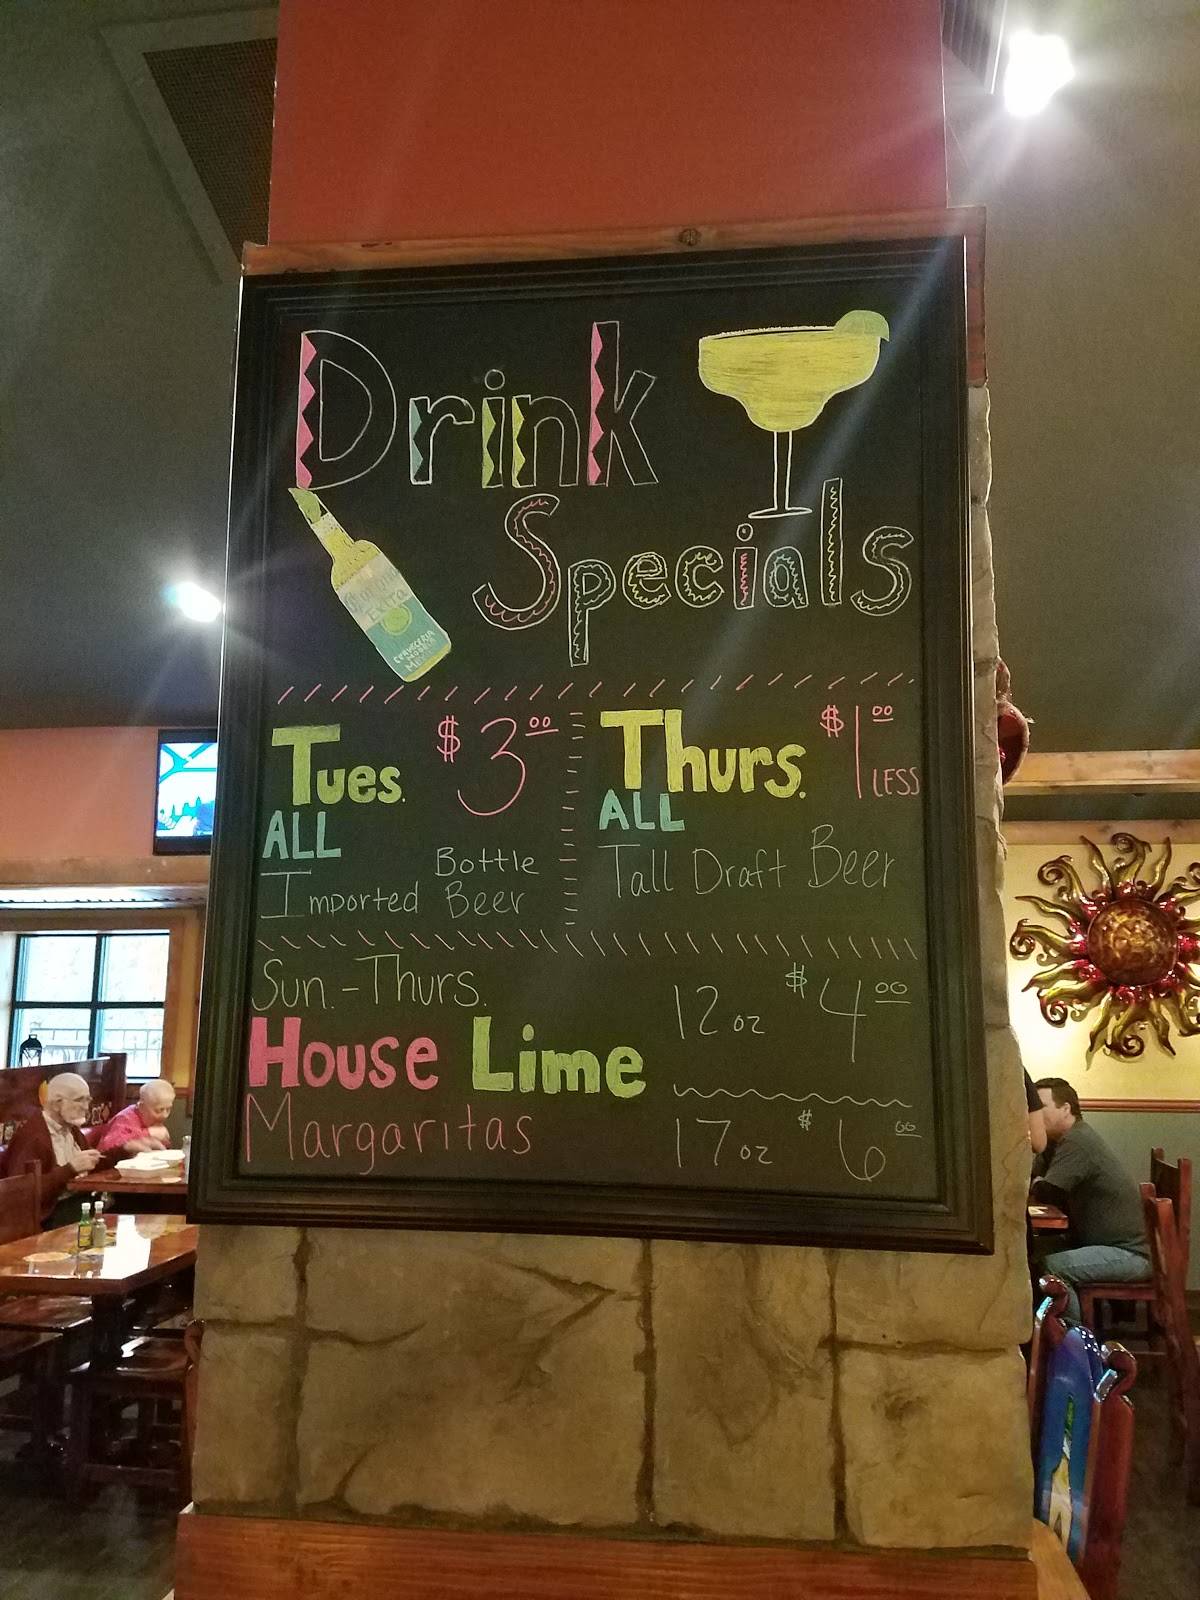 Drink
Specials
Corona
Extra
CERVECERIA
MODELO
MEXICO
Tues. $3.00
ALL
Imported Bottle Beer
Thurs. $1.00 LESS
ALL
Tall Draft Beer
Sun.-Thurs.
House Lime
Margaritas
12 oz $4.00
17 oz $6.00